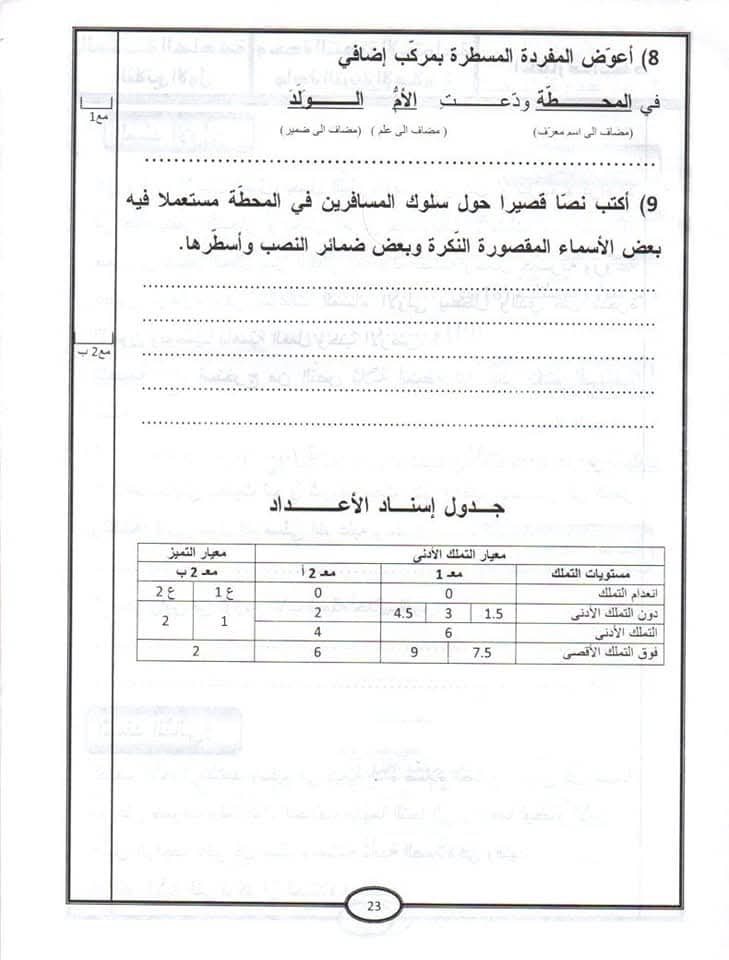 8) أعوّض المفردة المسطرة بمركّب إضافي
في المحطّة ودّعت الأمُّ الولَدَ
(مضاف الى اسم معرّف) (مضاف الى علم) (مضاف الى ضمير)
مع1
9) أكتب نصّا قصيرا حول سلوك المسافرين في المحطّة مستعملا فيه
بعض الأسماء المقصورة النّكرة وبعض ضمائر النصب وأسطّرها.
مع2 ب
جدول إسناد الأعداد
معيار التملك الأدنى معيار التميز
مستويات التملك معـ 1 معـ 2 أ معـ 2 ب
انعدام التملك 0 0 ع 1 ع 2
دون التملك الأدنى 1.5 3 4.5 2 1 2
التملك الأدنى 6 4
فوق التملك الأقصى 7.5 9 6 2
23